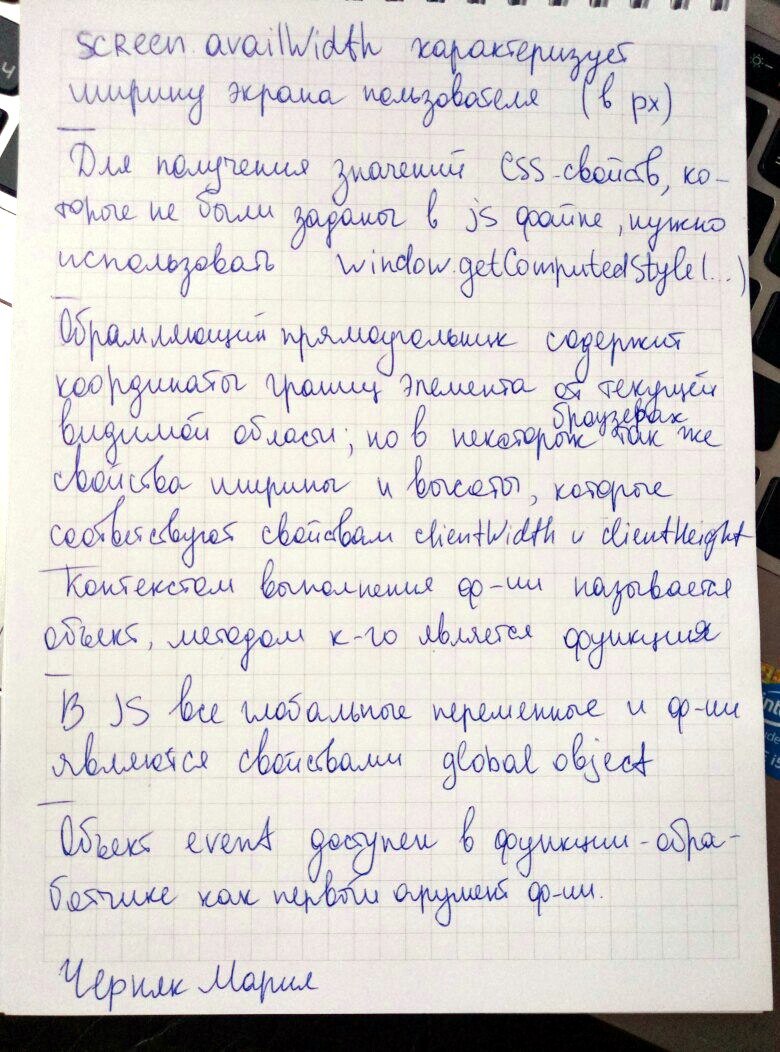 screen.availWidth характеризует
ширину экрана пользователя (в px)
Для получения значений CSS-свойств, ко-
торые не были заданы в js файле, нужно
использовать window.getComputedStyle(...)
Обрамляющий прямоугольник содержит
координаты границ элемента от текущей
браузерах
видимой области; но в некоторых так же
свойства ширины и высоты, которые
соответствуют свойствам clientWidth и clientHeight
Контекстом выполнения ф-ии называется
объект, методом к-го является функция
В JS все глобальные переменные и ф-ии
являются свойствами global object
Объект event доступен в функции-обра-
ботчике как первый аргумент ф-ии.
Черняк Мария